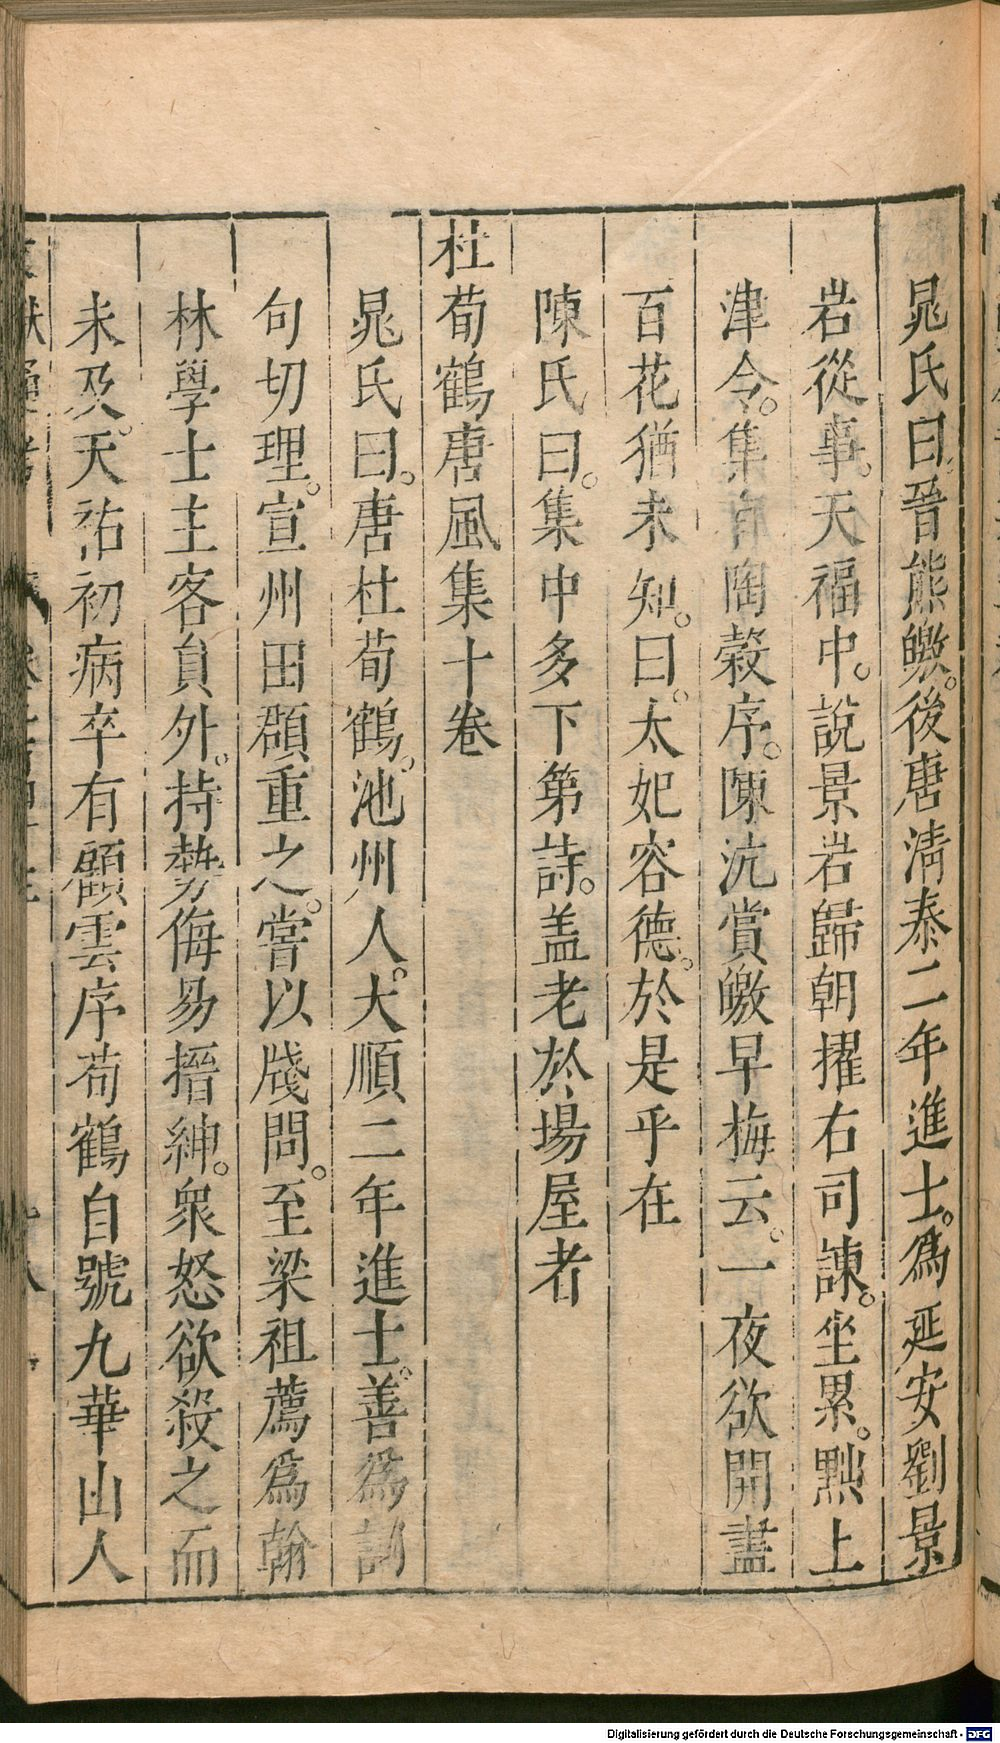 晁氏曰晉熊皦後唐清泰二年進士爲延安劉景
岩從事。天福中。說景岩歸朝擢右司諫。坐累。黜上
津令。集有陶穀序。陳沆賞皦早梅云。一夜欲開盡
百花猶未知。曰。太妃容德。於是乎在
陳氏曰。集中多下第詩。盖老於場屋者
杜荀鶴唐風集十卷
晁氏曰。唐杜荀鶴。池州人。大順二年進士。善爲詞
句切理。宣州田頵重之。嘗以牋問。至梁祖薦爲翰
林學士主客員外。持勢侮易搢紳。衆怒欲殺之而
未及。天祐初病卒有顧雲序荀鶴自號九華山人
Digitalisierung gefördert durch die Deutsche Forschungsgemeinschaft - DFG